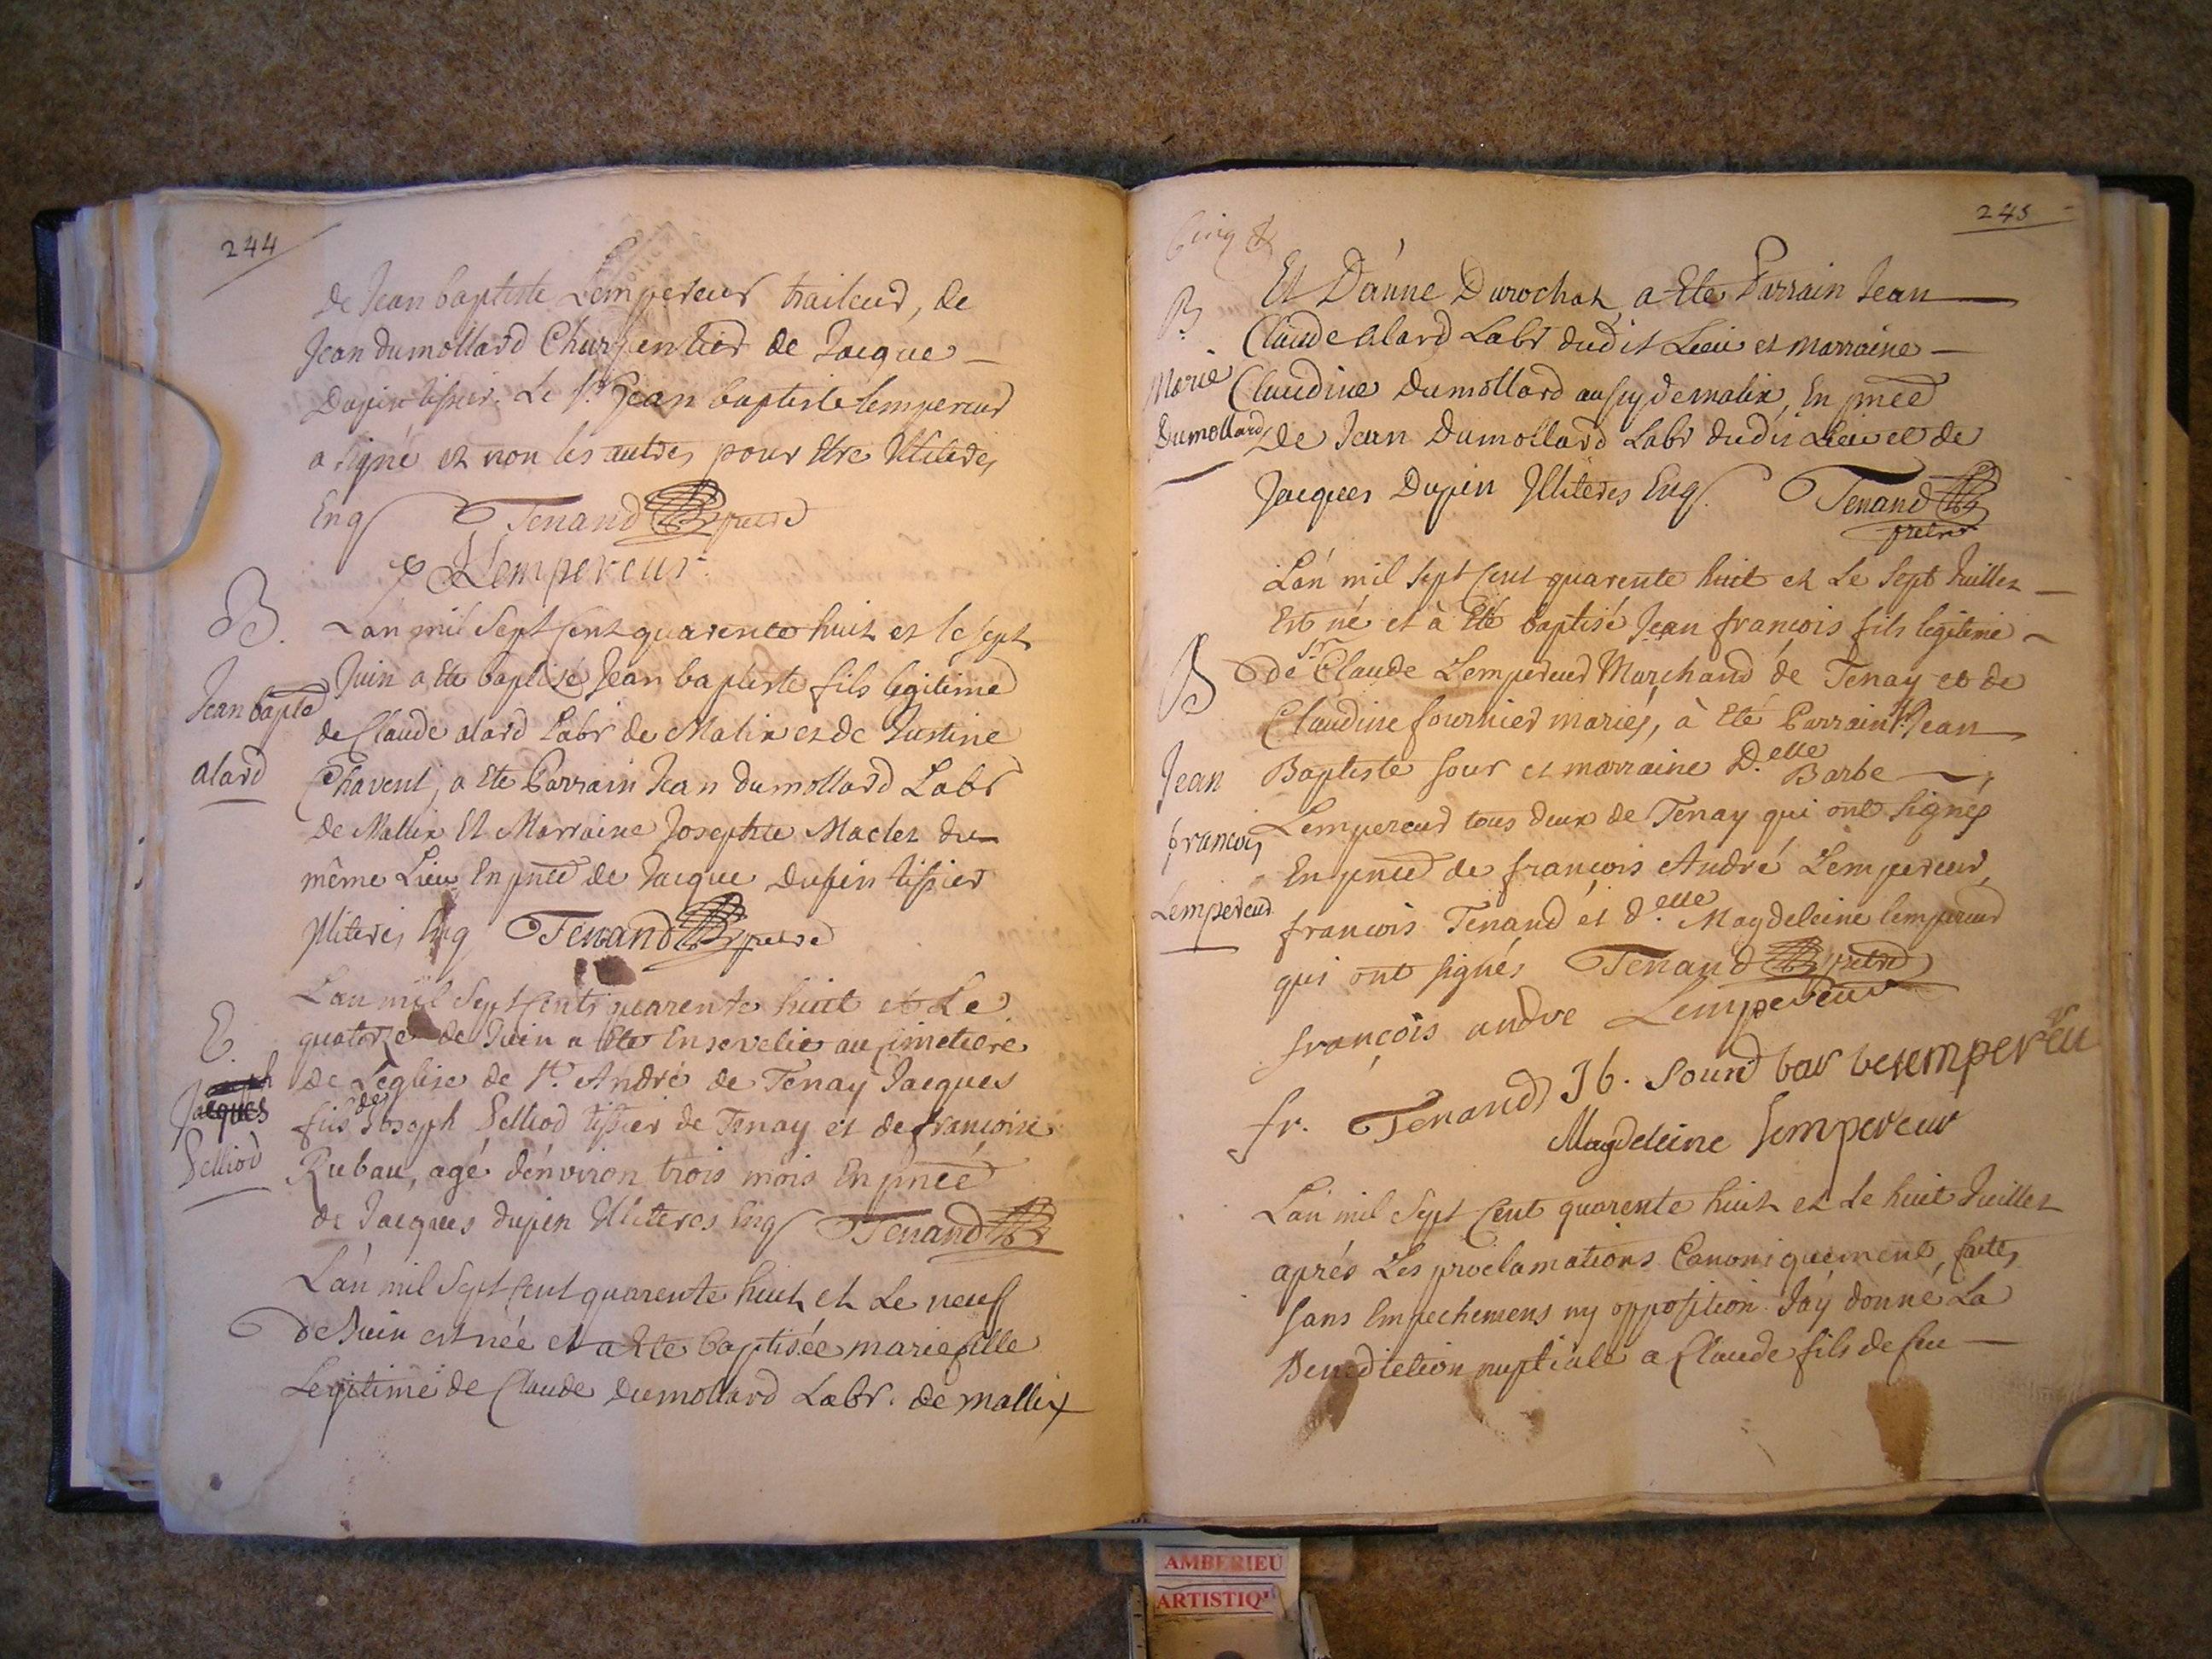 244
de Jean baptiste Lempereur traiteur, de
Jean dumollard Charpentier de Jacque
Dupin tissier. Le Sr. Jean baptiste lempereur
a signé et non les autres pour Etre Illiteres
Enq Tenand pretre
Lempereur
B.
Jean bapte
alard
Lan mil Sept Cent quarente huit et le sept
Juin a Ete baptisé Jean baptiste fils legitime
de Claude alard Labr de Malix et de Justine
Chavent, a Ete Parrain Jean dumollard Labr
de Mallix Et Marraine Josephte Maclet du
même Lieu En pnce de Jacque Dupin tissier
Illiteres Enq Tenand pretre
E.
Jacques
Pelliod
L'an mil Sept Cents quarente huit et Le
quatorze de Juin a Ete Ensevelie au Cimetiere
de L'eglise de St. André de Tenay Jacques
fils de Joseph Pelliod tissier de Tenay et de francoise
Rubau, agé d'environ trois mois En pnce
de Jacques dupin Illiteres Enq Tenand
L'an mil Sept Cent quarente huit et Le neuf
de Juin est née et a Ete baptisée marie fille
Legitime de Claude dumollard Labr. de mallix
245
Cinq &
B
Marie
Dumollard
Et D'anne Durochat, a Ete Parrain Jean
Claude alard Labr dudit Lieu et marraine
Claudine dumollard aussy de malix, En pnce
de Jean Dumollard Labr dudit Lieu et de
Jacques Dupin Illiteres Enq. Tenand
pretre
B
Jean
francois
Lempereur
L'an mil Sept Cent quarente huit et Le Sept Juillet
Est né et à Eté baptisé Jean francois fils legitime
de Sr. Claude Lempereur Marchand de Tenay et de
Claudine fournier mariés, à Eté Parrain Sr. Jean
Baptiste Sour et marraine D.elle Barbe
Lempereur tous deux de Tenay qui ont Signés
En pnce de françois André Lempereur,
francois Tenand et d.elle Magdeleine lempereur
qui ont signés Tenand pretre
françois andre Lempereur
fr. Tenand J b. Sourd barbe lempereur
Magdeleine Lempereur
L'an mil Sept Cent quarente huit et Le huit Juillet
aprés Les proclamations Canoniquement faites
sans Empechemens ny opposition. J'ay donné La
Benediction nuptiale a Claude fils de feu
AMBERIEU
ARTISTIQ